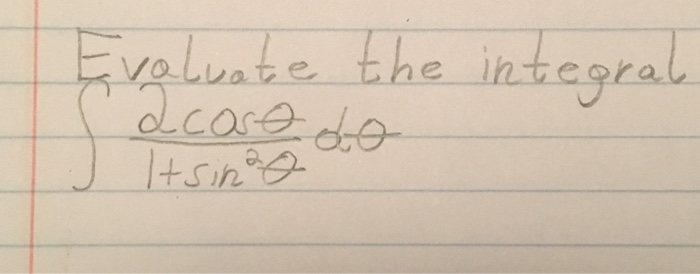 Evaluate the integral
∫ 2cosθ / 1+sin²θ dθ